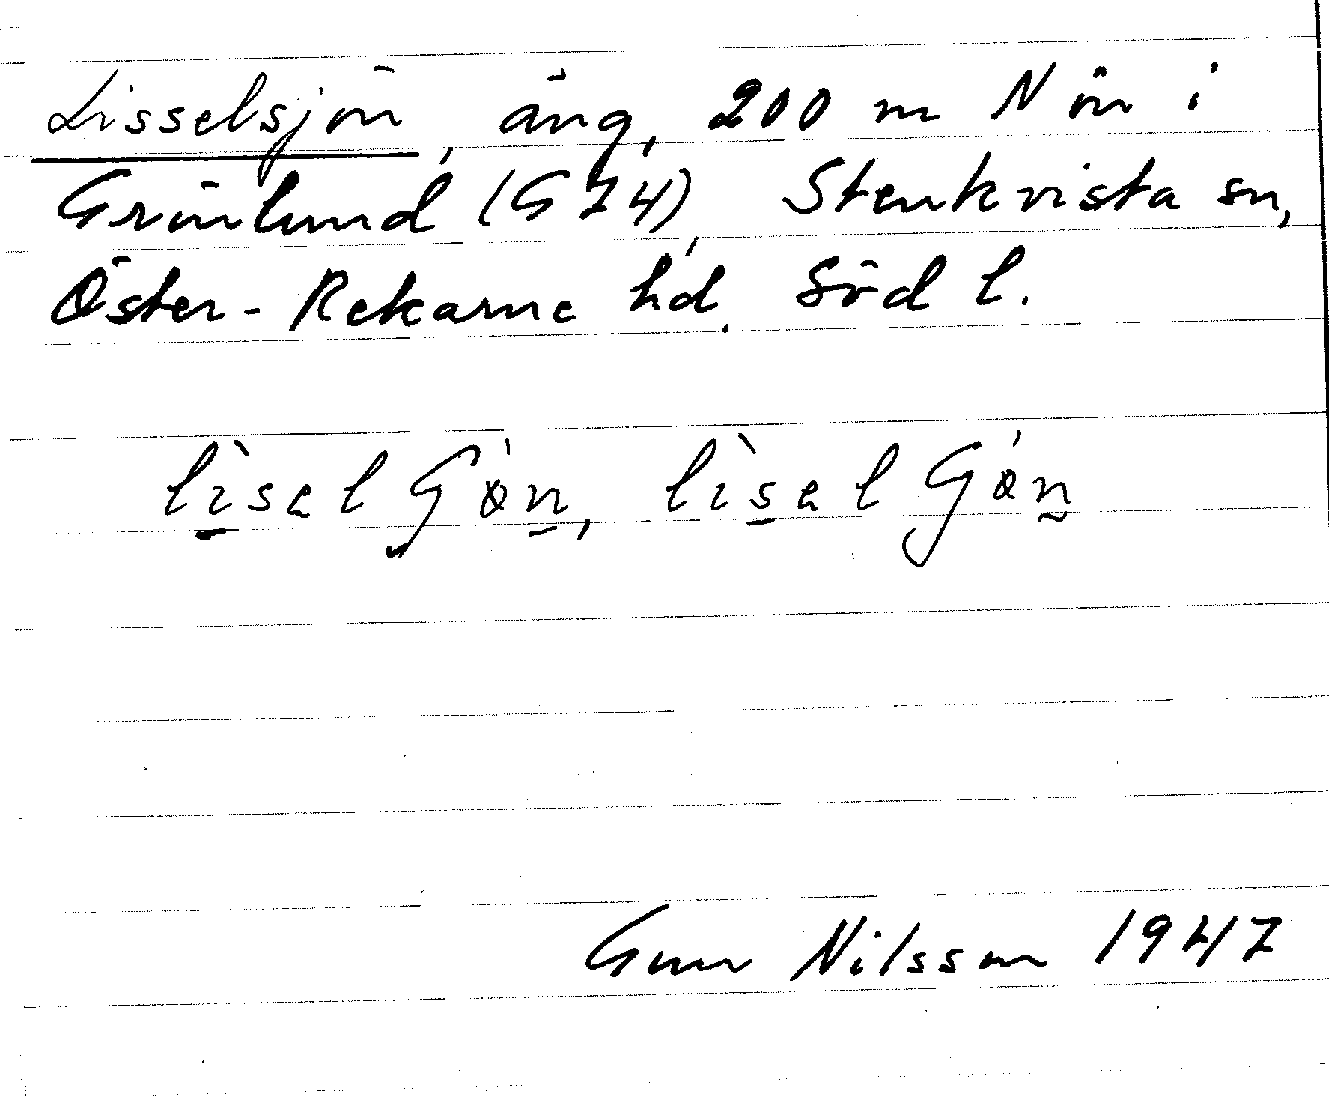 Lisselsjön, äng, 200 m N ön i
Grönlund (G 74), Stenkvista sn,
Öster-Rekarne hd. Söd l.
Gun Nilsson 1947